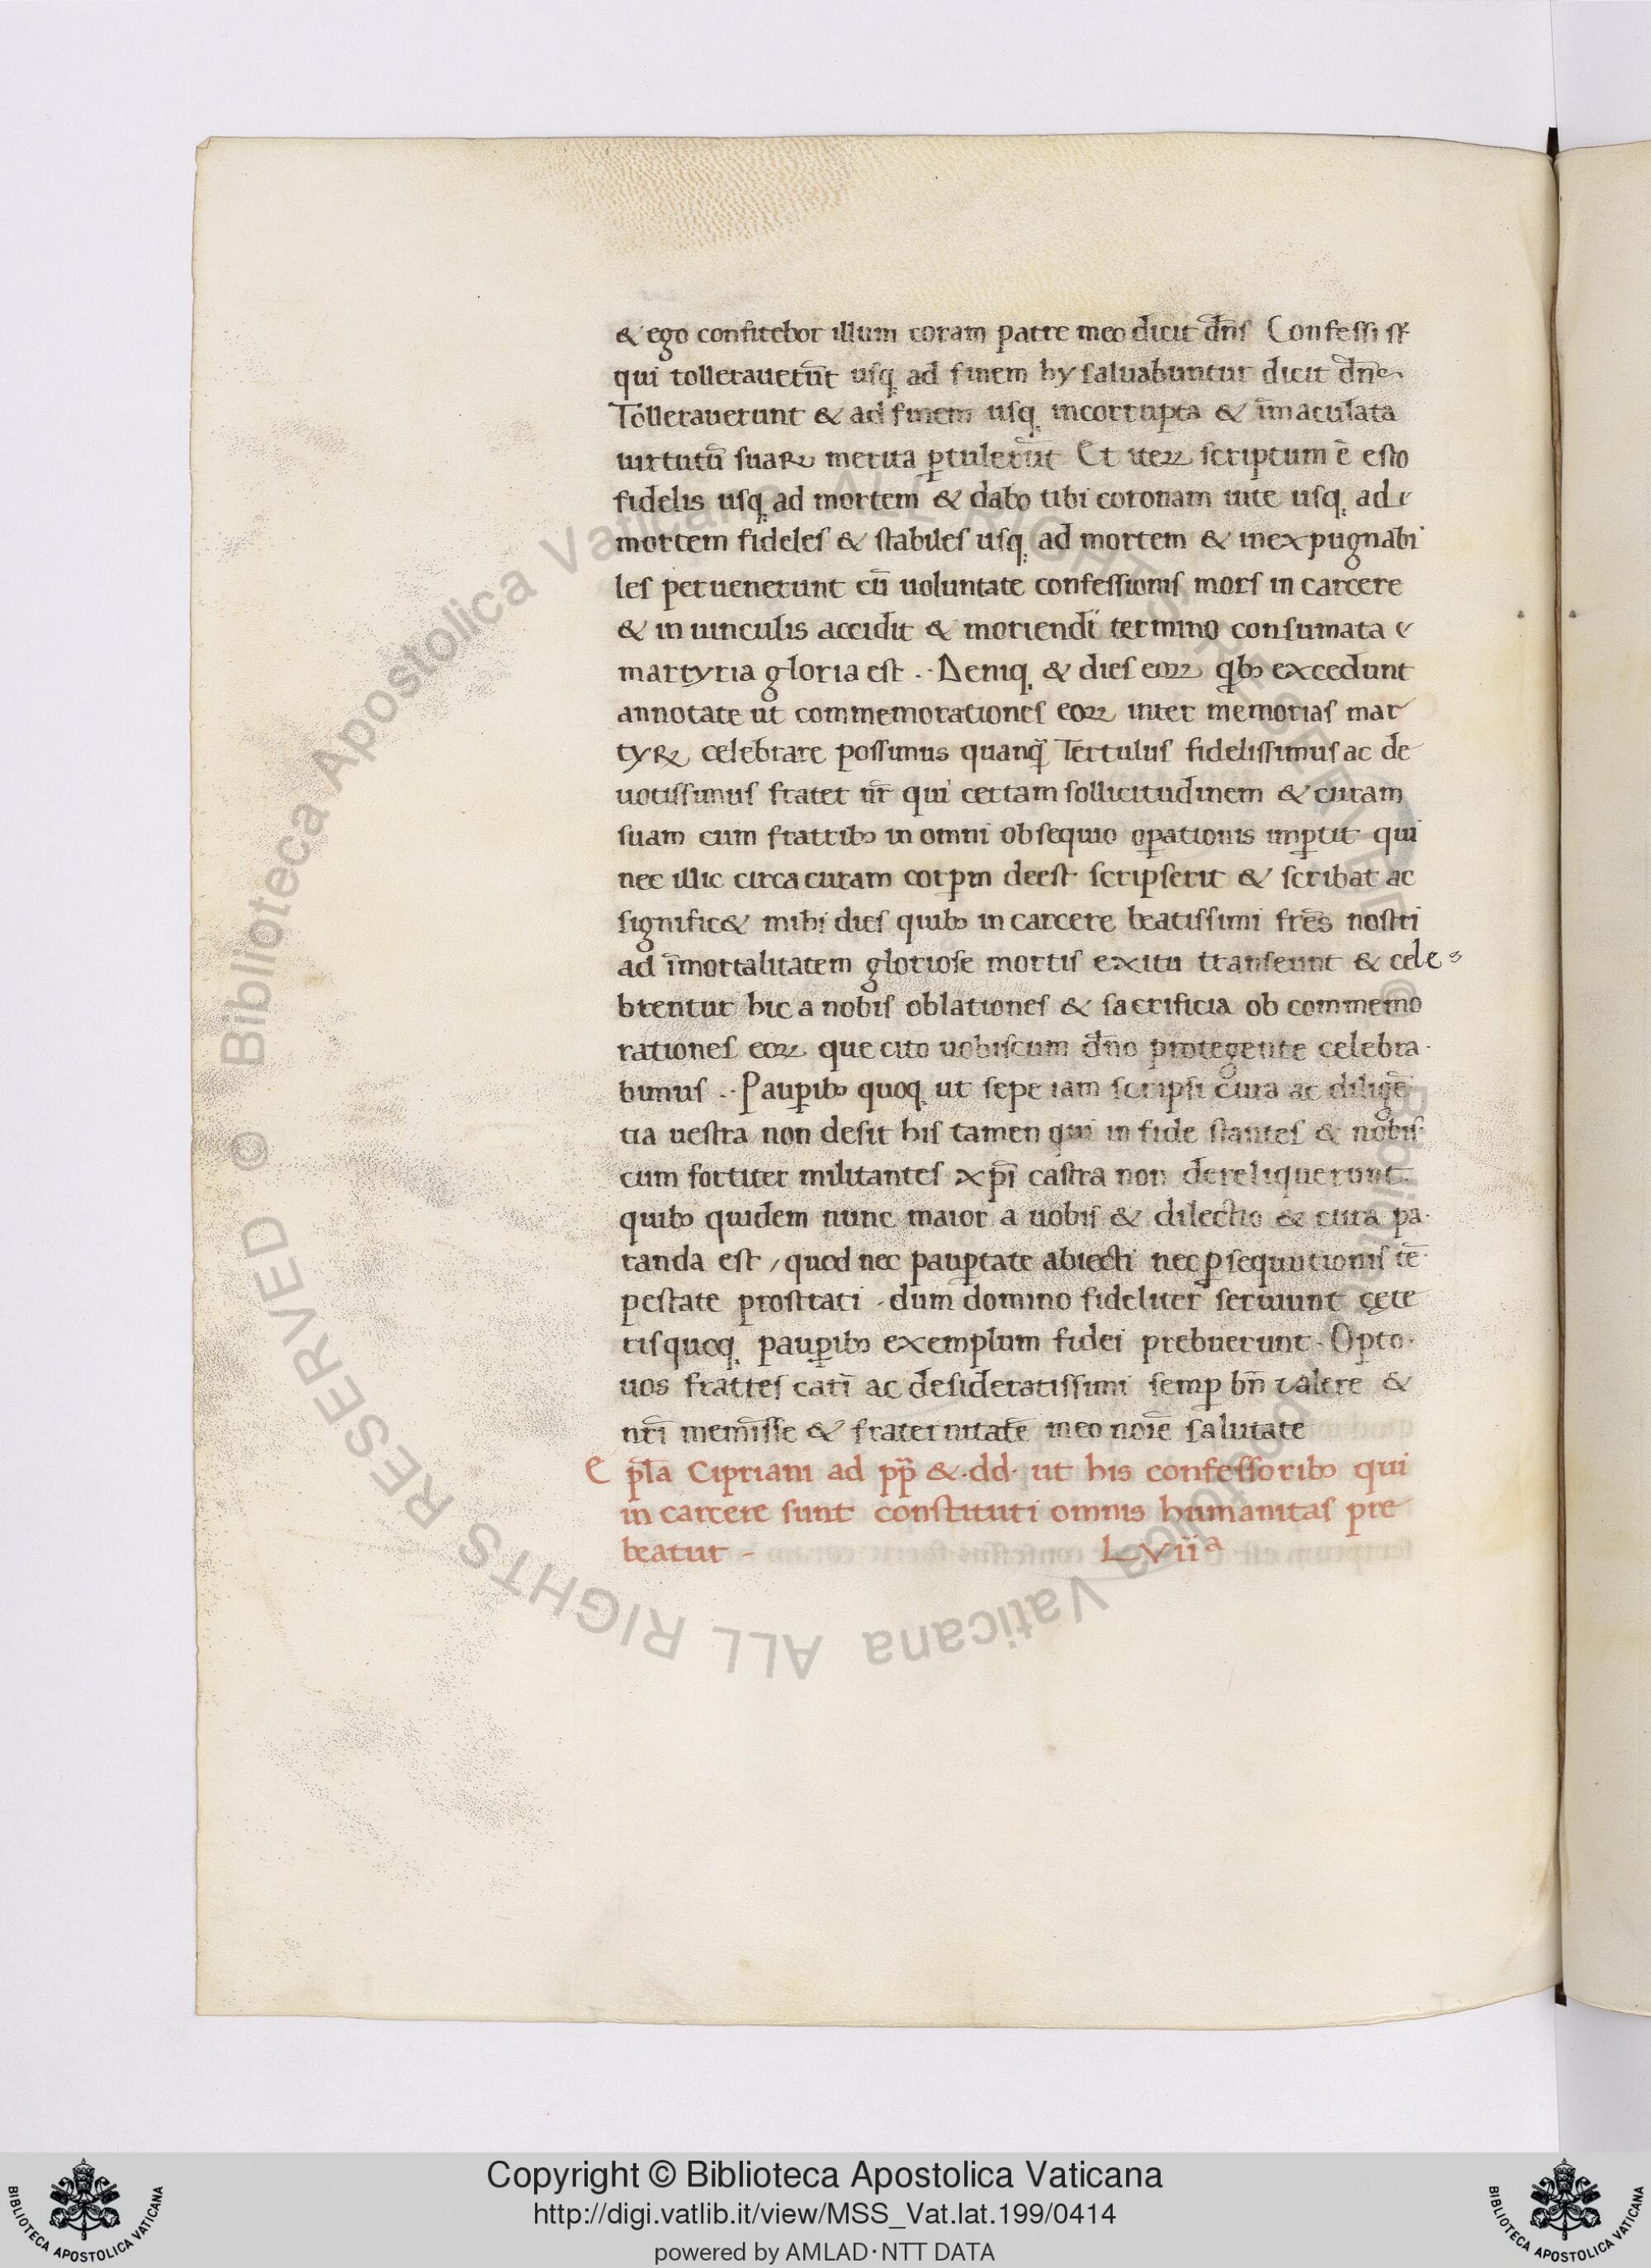 & ego confitebor illum coram patre meo dicit dñs Confessi st
qui tolleraverūt usq; ad finem hy saluabuntur dicit dñe
Tollerauerunt & ad finem usq; incorrupta & īmaculata
uirtutū suaꝝ merita ꝑtulerūt Et iteꝝ scriptum ē esto
fidelis usq; ad mortem & dabo tibi coronam uite usq; ad
mortem fideles & stabiles usq; ad mortem & inexpugnabi
les peruenerunt cū uoluntate confessionis mors in carcere
& in uinculis accidit & moriendi termino consumata
martyria gloria est .. Deniq; & dies eoꝝ qbꝫ excedunt
annotate ut commemorationes eoꝝ inter memorias mar
tyꝝ celebrare possimus quanq̄ Tertulus fidelissimus ac de
uotissimus frater nr̄ qui certam sollicitudinem & curam
suam cum fratribꝫ in omni obsequio oꝑationis imꝑtit qui
nec illic circa curam corpm deest scripserit & scribat ac
signific& mihi dies quibꝫ in carcere beatissimi fr̄es nostri
ad īmortalitatem gloriose mortis exitu transeunt & cele
brentur hic a nobis oblationes & sacrificia ob commemo
rationes eoꝝ que cito uobiscum dño protegente celebra
bimus .. Pauꝑibꝫ quoq; ut sepe iam scripsi cura ac diligē
tia uestra non desit his tamen qui in fide stantes & nobis
cum fortiter militantes xp̄i castra non dereliquerunt
quibꝫ quidem nunc maior a uobis & dilectio & cura pa
randa est / quod nec pauꝑtate abiecti nec ꝑsequutionis tē
pestate prostrati . dum domino fideliter seruiunt cęte
risquoq; pauꝑibꝫ exemplum fidei prebuerunt . Opto
uos fratres cari ac desideratissimi semꝑ bn̄ valere &
nr̄i memīsse & fraternitatē meo noīe salutate
Ep̄la Cipriani ad pp̄ &.dd. ut his confessoribꝫ qui
in carcere sunt constituti omnis humanitas pre
beatur - LVIIᵃ
© Biblioteca Apostolica Vaticana ALL RIGHTS RESERVED © Biblioteca Apostolica Vaticana ALL RIGHTS RESERVED
Copyright © Biblioteca Apostolica Vaticana
http://digi.vatlib.it/view/MSS_Vat.lat.199/0414
powered by AMLAD·NTT DATA
BIBLIOTECA APOSTOLICA VATICANA
BIBLIOTECA APOSTOLICA VATICANA